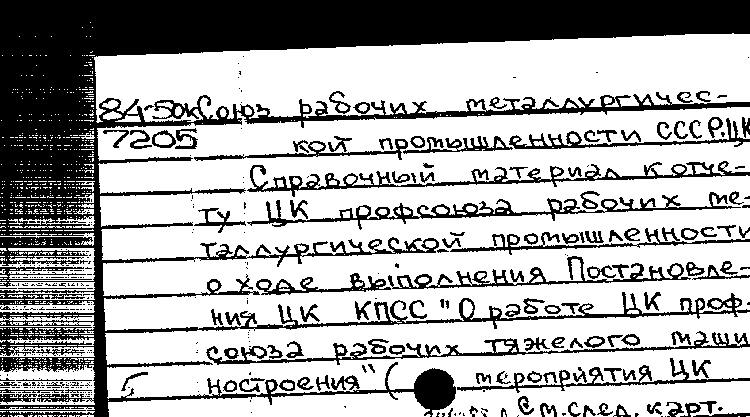 84-50к Союз рабочих металлургичес-
7205 кой промышленности СССР. ЦК
Справочный материал к отче-
ту ЦК профсоюза рабочих ме-
таллургической промышленности
о ходе выполнения Постановле-
ния ЦК КПСС "О работе ЦК проф-
союза рабочих тяжелого маши
5 ностроения" ( мероприятия ЦК
См. след. карт.